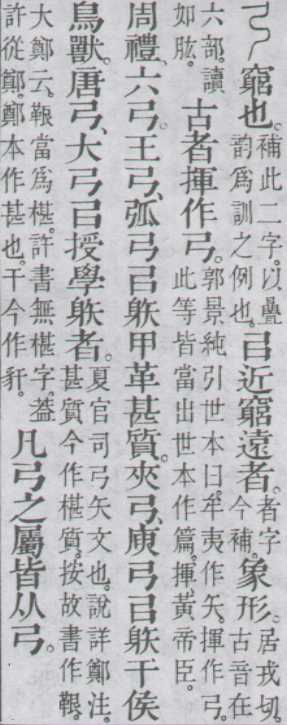 窮也。補此二字。以疊韵爲訓之例也。㠯近窮遠者。者字今補。象形。居戎切。古音在
六部。讀如肱。古者揮作弓。郭景純引世本曰。牟夷作矢。揮作弓。此等皆當出世本作篇。揮、黃帝臣。
周禮。六弓。王弓、弧弓㠯躲甲革甚質。夾弓、庾弓㠯躲干侯
鳥獸。唐弓、大弓㠯授學躲者。夏官司弓矢文也。說詳鄭注。甚質今作椹質。按故書作鞎。
大鄭云。鞎當爲椹。許書無椹字。葢許從鄭。鄭本作甚也。干今作豻。凡弓之屬皆从弓。